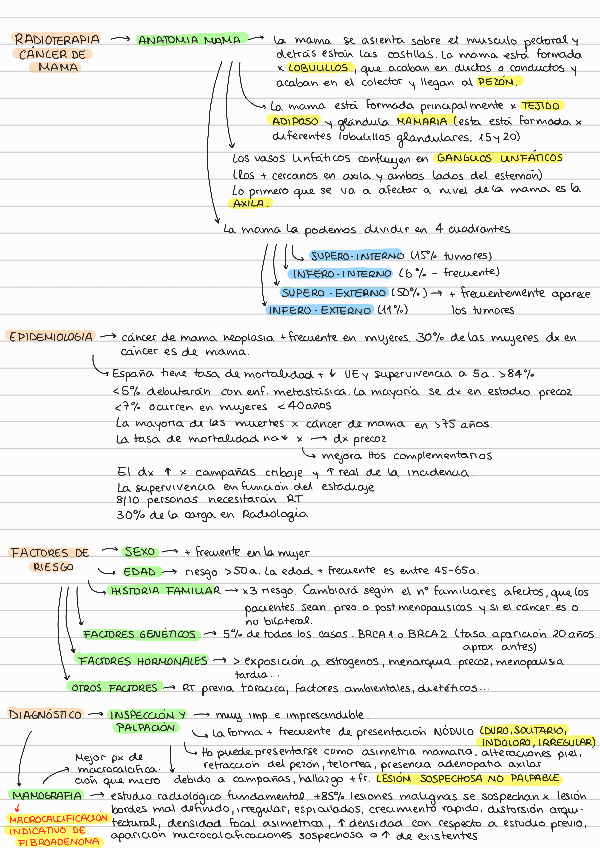 RADIOTERAPIA CÁNCER DE MAMA → ANATOMIA MAMA → La mama se asienta sobre el musculo pectoral y
detrás están las costillas. La mama está formada
x LOBULILLOS, que acaban en ductos o conductos y
acaban en el colector y llegan al PEZÓN.
La mama está formada principalmente x TEJIDO
ADIPOSO y glándula MAMARIA (esta está formada x
diferentes lobulillos glandulares, 15 y 20)
Los vasos linfáticos confluyen en GANGLIOS LINFÁTICOS
(los + cercanos en axila y ambos lados del esternón)
Lo primero que se va a afectar a nivel de la mama es la
AXILA.
La mama la podemos dividir en 4 cuadrantes
SUPERO-INTERNO (15% tumores)
INFERO-INTERNO (6% - frecuente)
SUPERO-EXTERNO (50%) → + frecuentemente aparece
INFERO-EXTERNO (11%) los tumores
EPIDEMIOLOGIA → cáncer de mama neoplasia + frecuente en mujeres. 30% de las mujeres dx en
cáncer es de mama.
España tiene tasa de mortalidad + ↓ UE y supervivencia a 5a. >84%
<5% debutarán con enf. metastásica. La mayoría se dx en estadio precoz
<7% ocurren en mujeres <40años
La mayoría de las muertes x cáncer de mama en >75 años.
La tasa de mortalidad ha ↓ x → dx precoz
mejora ttos complementarios
El dx ↑ x campañas cribaje y ↑ real de la incidencia
La supervivencia en función del estadiaje
8/10 personas necesitarán RT
30% de la carga en Radiología
FACTORES DE RIESGO → SEXO → + frecuente en la mujer
EDAD → riesgo >50a. La edad + frecuente es entre 45-65a.
HISTORIA FAMILIAR → x3 riesgo. Cambiará según el nº familiares afectos, que los
pacientes sean preo o post menopausicas y si el cáncer es o
no bilateral.
FACTORES GENÉTICOS → 5% de todos los casos. BRCA1 o BRCA2 (tasa aparición 20 años
aprox antes)
FACTORES HORMONALES → > exposición a estrogenos, menarquia precoz, menopausia
tardía...
OTROS FACTORES → RT previa torácica, factores ambientales, dietéticos...
DIAGNÓSTICO → INSPECCIÓN Y PALPACIÓN → muy imp e imprescindible
La forma + frecuente de presentación NÓDULO (DURO, SOLITARIO,
INDOLORO, IRREGULAR)
Tto puede presentarse como asimetria mamaria, alteraciones piel,
retracción del pezón, telorrea, presencia adenopatía axilar
Mejor px de
macrocalcifica-
ción que micro
debido a campañas, hallazgo + fr. LESIÓN SOSPECHOSA NO PALPABLE
MAMOGRAFIA → estudio radiológico fundamental. +85% lesiones malignas se sospechan x lesión
bordes mal definido, irregular, espiculados, crecimiento rapido, distorsión arqui-
tectural, densidad focal asimetrica, ↑ densidad con respecto a estudio previo,
aparición microcalcificaciones sospechosa o ↑ de existentes
MACROCALCIFICACIÓN
INDICATIVO DE
FIBROADENOMA